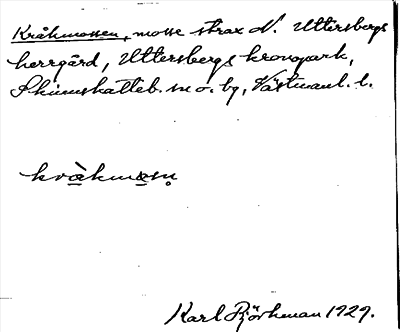 Kråkmossen, mosse strax N. Uttersbergs
herrgård, Uttersbergs kronopark,
Skinnskatteb. sn o. bg, Västmanl. l.
kråkmosn̥
Karl Björkman 1929.